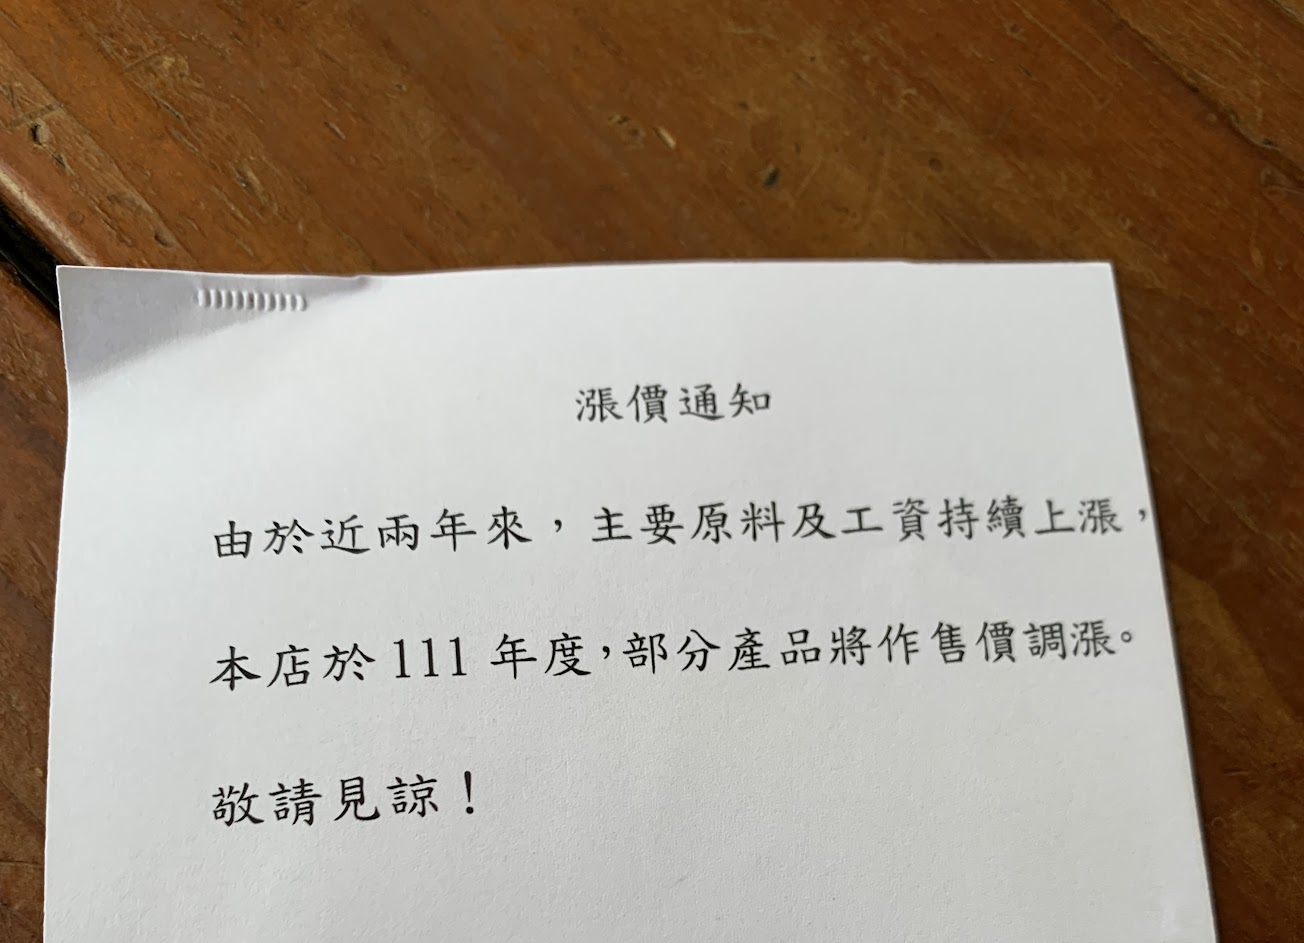 漲價通知
由於近兩年來，主要原料及工資持續上漲，
本店於 111 年度，部分產品將作售價調漲。
敬請見諒！